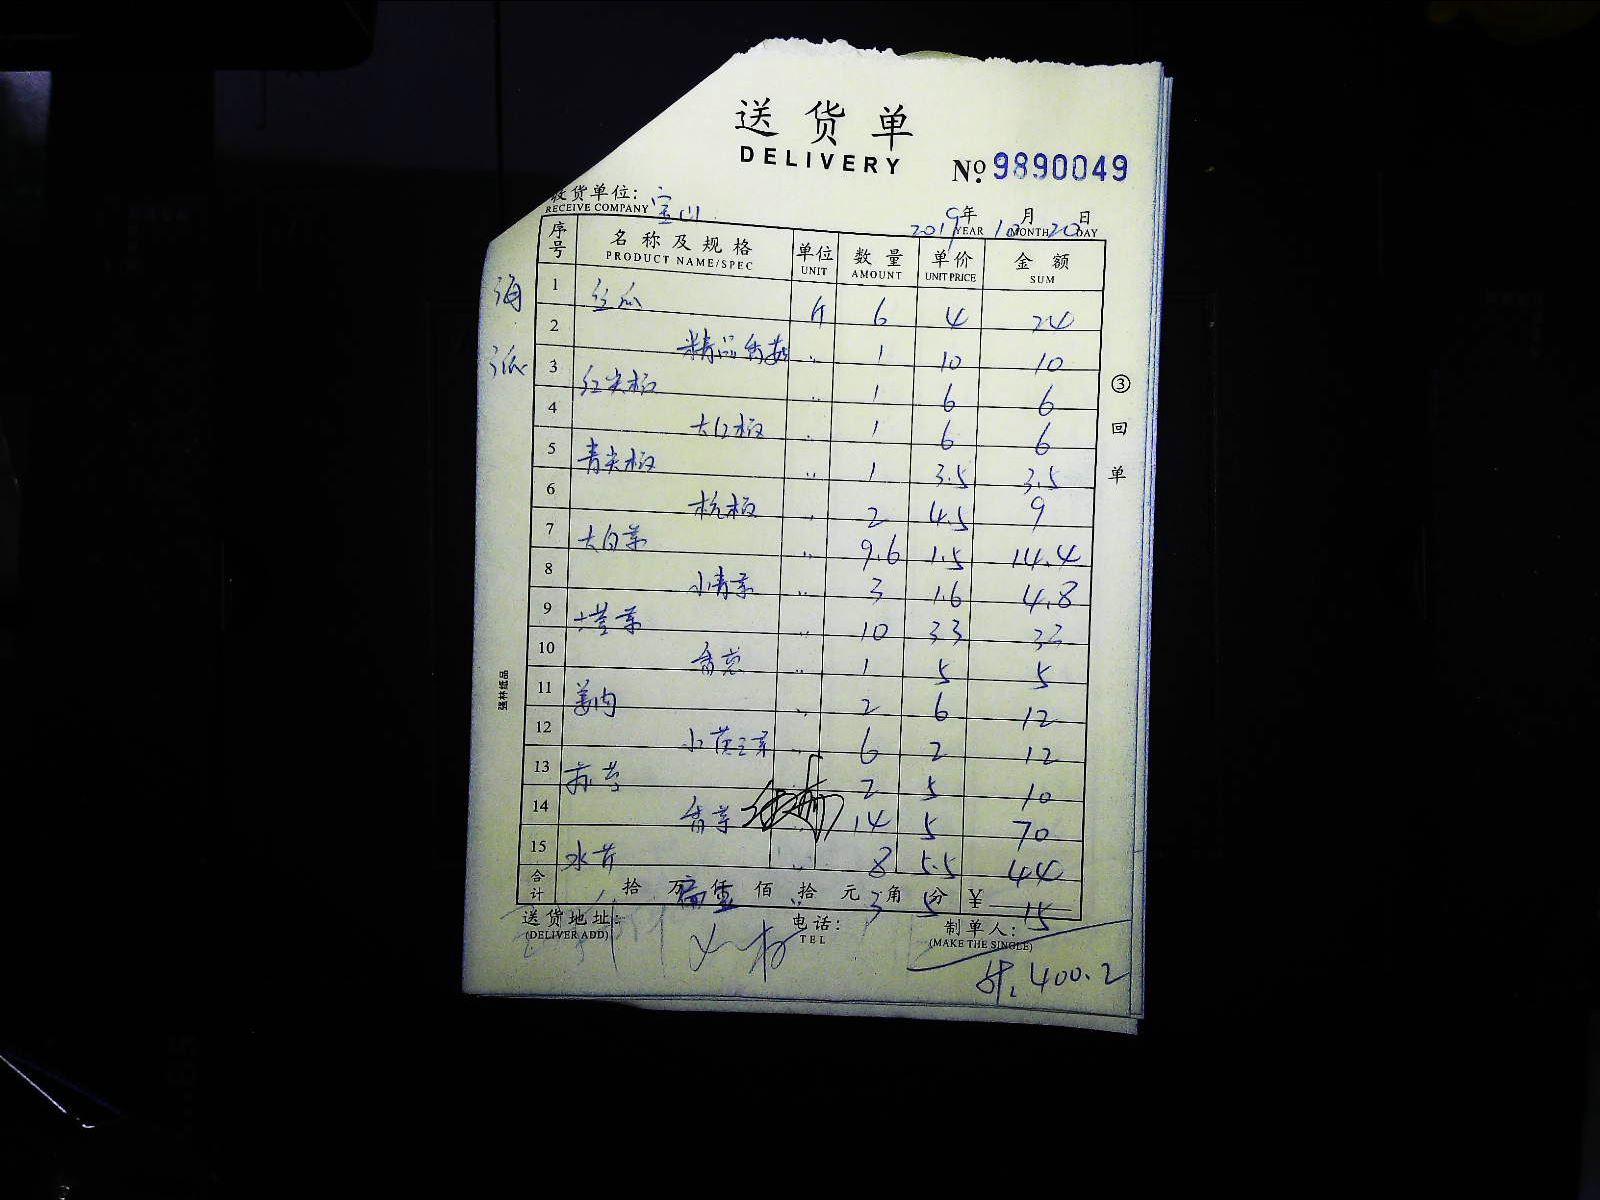 送货单
DELIVERY
No. 9890049
收货单位: 宝山
RECEIVE COMPANY
2019年10月20日
YEAR MONTH DAY
序号 名称及规格 单位 数量 单价 金额
PRODUCT NAME/SPEC UNIT AMOUNT UNIT PRICE SUM
1 丝瓜 斤 6 4 24
2 精品香菇 〃 1 10 10
3 红尖椒 〃 1 6 6
4 大红椒 〃 1 6 6
5 青尖椒 〃 1 3.5 3.5
6 杭椒 〃 2 4.5 9
7 大白菜 〃 9.6 1.5 14.4
8 小青菜 〃 3 1.6 4.8
9 塔菜 〃 10 3.3 33
10 香葱 〃 1 5 5
11 姜肉 〃 2 6 12
12 〃 6 2 12
13 2 5 10
14 香芹 14 5 70
15 水芹 〃 8 5.5 44
合计 拾 万 仟 佰 拾 元 角 分 ¥
3 5 15
送货地址: 电话: 制单人:
(DELIVER ADD) TEL (MAKE THE SINGLE)
400.2
③回单
强林纸品
海